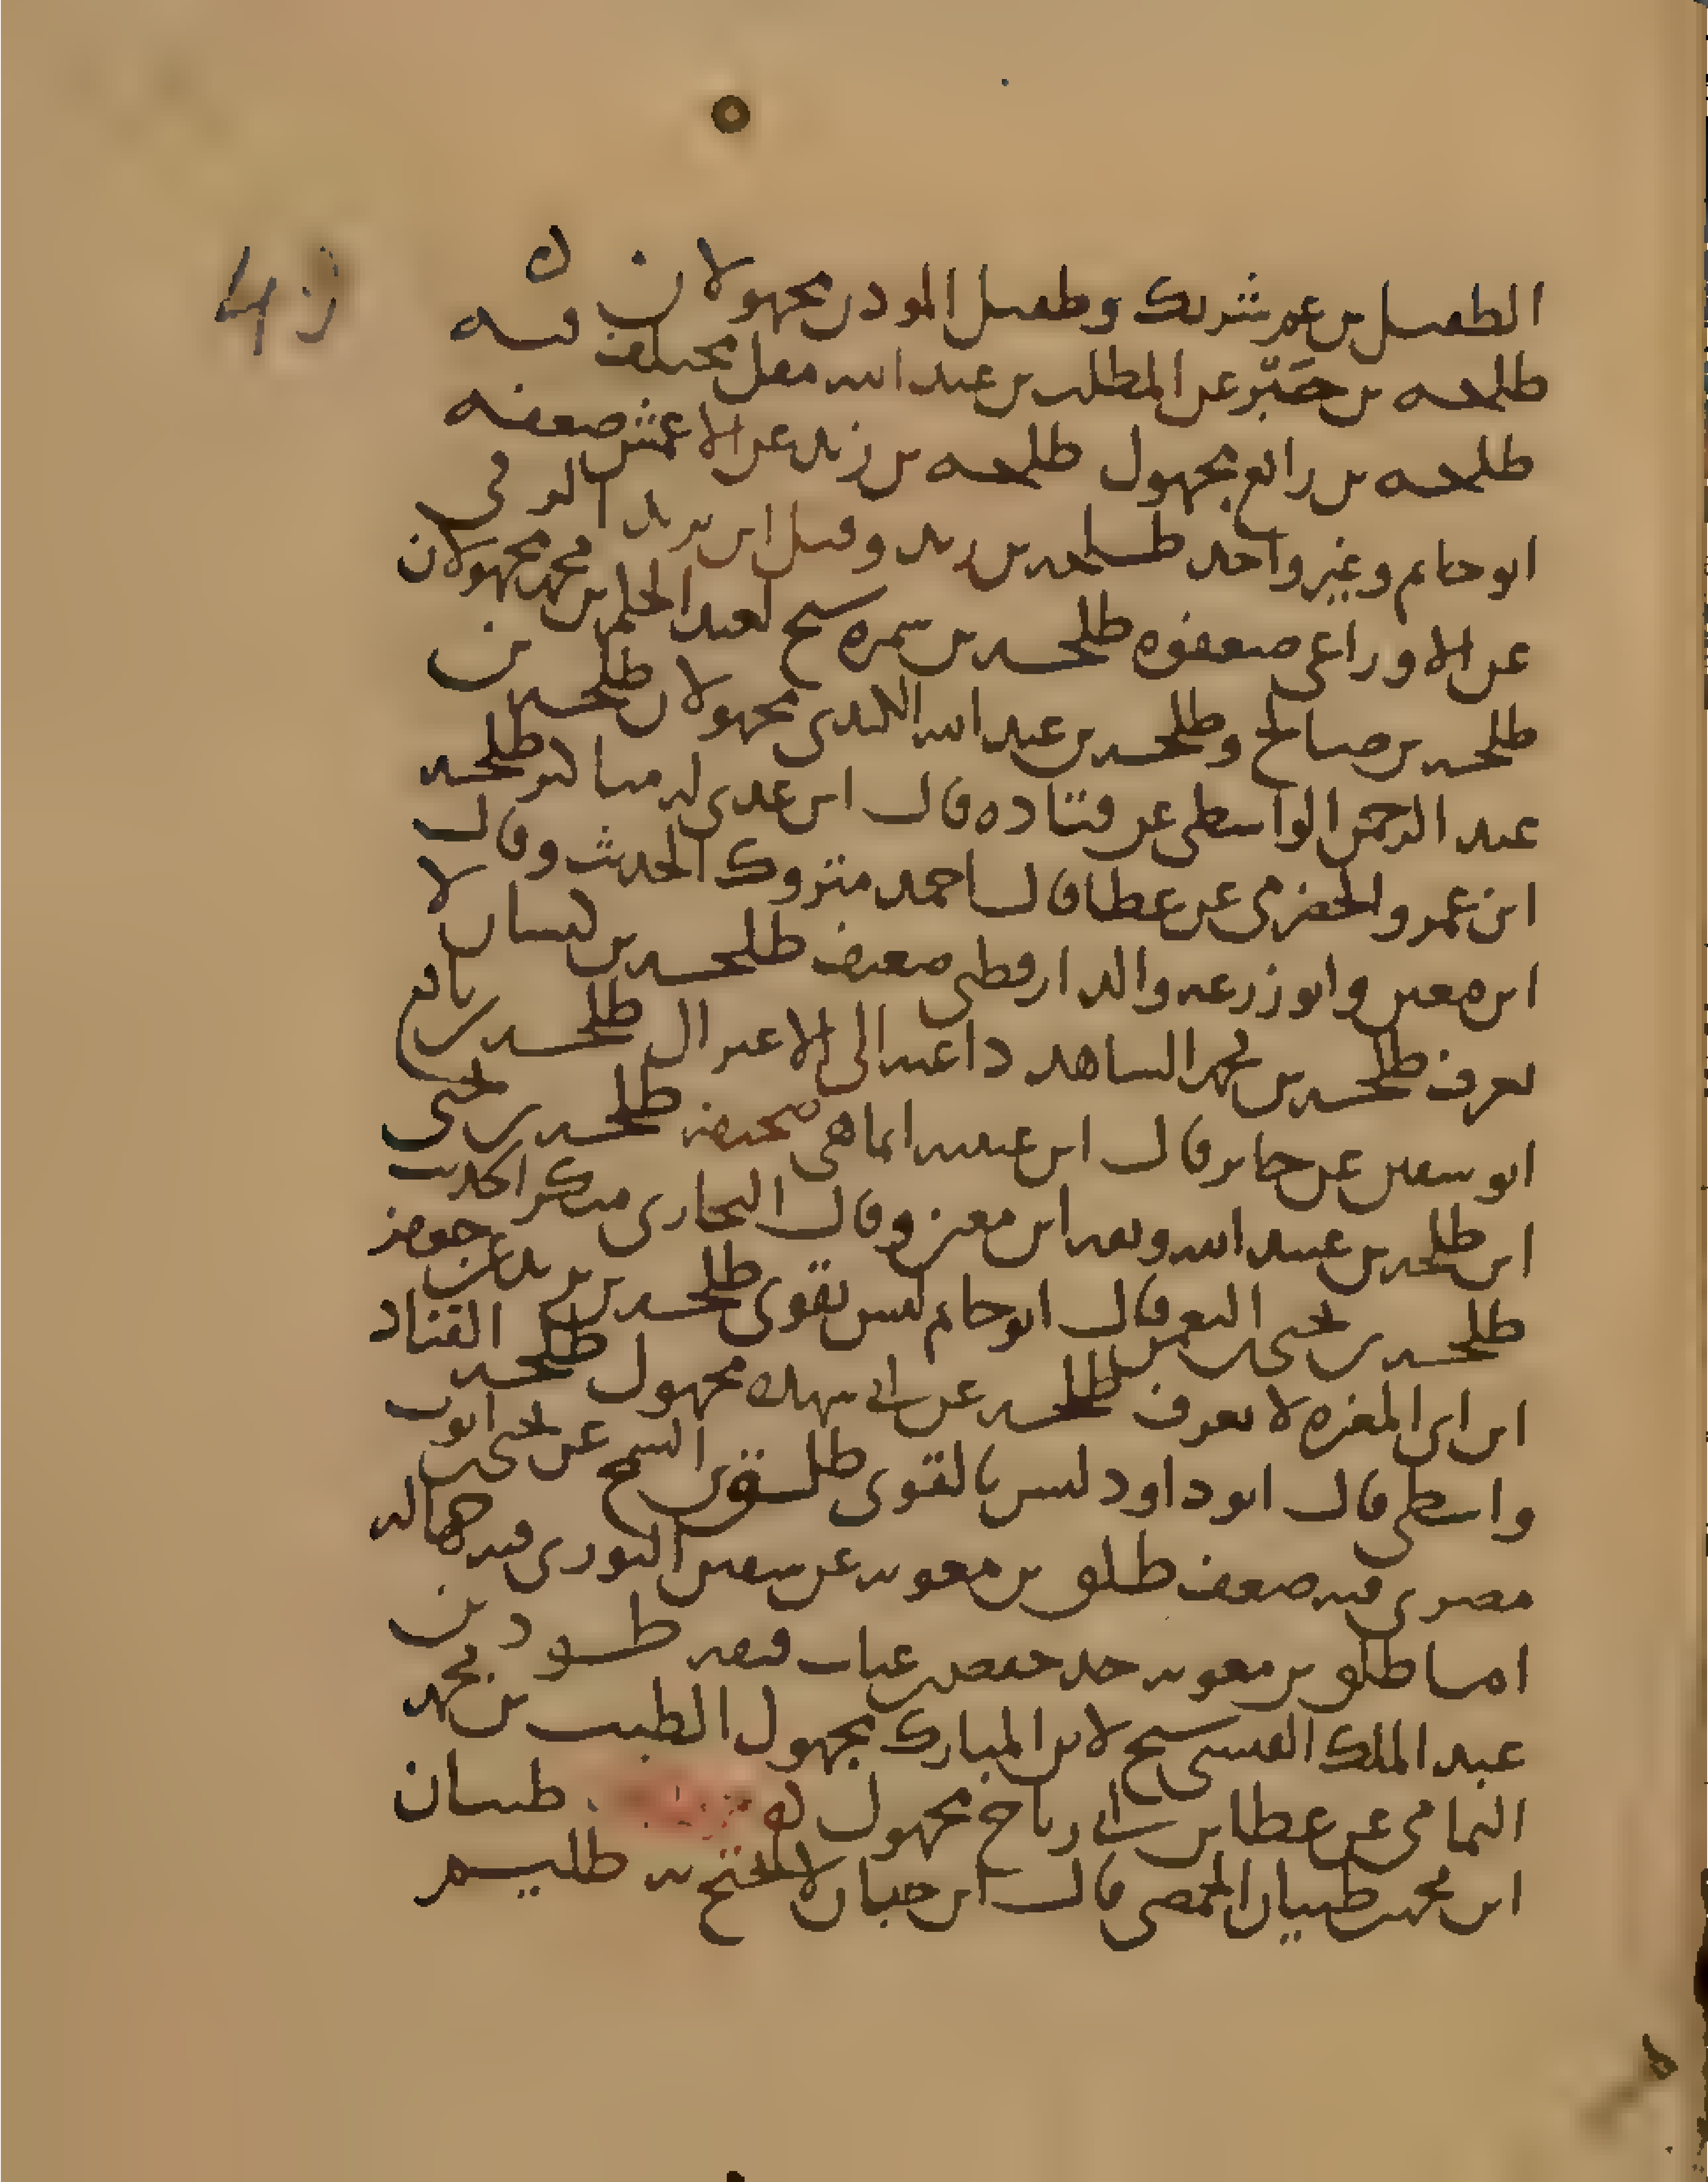 الطفيل بن عمر شريك وطفيل المودن مجهولان ن
طلحه بن جَبْر عن المطلب بن عبد الله مقل مختلف فيه
طلحه بن رافع مجهول طلحه بن زيد عن الاعمش ضعفه
ابو حاتم وغير واحد طلحه بن زيد وقيل ابن يزيد الرقي
عن الاوزاعي ضعفوه طلحه بن سمره شيخ لعبد الحكم بن محمد مجهولان
طلحه بن صالح وطلحه بن عبد الله الكندي مجهولان طلحه بن
عبد الرحمن الواسطي عن قتاده قال ابن عدي له مناكير طلحه
ابن عمرو الحضرمي عن عطا قال احمد متروك الحديث وقال
ابن معين وابو زرعه والدارقطني ضعيف طلحه بن كيسان لا
يعرف طلحه بن محمد الشاهد داعيه الى الاعتزال طلحه بن نافع
ابو سفين عن جابر قال ابن عيينه انما هي صحيفه طلحه بن يحيى
ابن طلحه بن عبيد الله وثقه ابن معين وقال البخاري منكر الحديث
طلحه بن يحيى بن النعمن قال ابو حاتم ليس بقوي طلحه بن يزيد عن جعفر
ابن ابي المغيره لا يعرف طلحه عن ابي سهله مجهول طلحه القناد
واسطي قال ابو داود ليس بالقوي طلق بن السمح عن يحيى بن ايوب
مصري فيه ضعف طلق بن معويه عن سفين الثوري فيه جهاله
اما طلق بن معويه جد حفص بن غياث فثقه طود بن
عبد الملك القيسي شيخ لابن المبارك مجهول الطيب بن محمد
اليمامي عن عطا بن ابي رباح مجهول طيبان
ابن محمد بن ظبيان الحمصي قال ابن حبان لا يحتج به طليسم